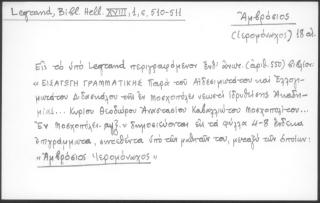 Legrand, Bibl. Hell. XVIII, 1, σ. 510-511
Ἀμβρόσιος
(Ἱερομόναχος) 18 αἰ.
Εἰς τὸ ὑπὸ Legrand περιγραφόμενον ἐνθ' ἀνωτ. (ἀριθ. 550) βιβλίον:
« ΕΙΣΑΓΩΓΗ ΓΡΑΜΜΑΤΙΚΗΣ Παρὰ τοῦ Αἰδεσιμωτάτου καὶ Ἐλλογι-
μωτάτου Διδασκάλου τῆς ἐν Μοσχοπόλει νεωστὶ ἱδρυθείσης Ἀκαδη-
μίας... Κυρίου Θεοδώρου Ἀναστασίου Καβαλλιώτου Μοσχοπολίτου...
Ἐν Μοσχοπόλει, αψξ. » δημοσιεύονται εἰς τὰ φύλλα 4-8 ἕνδεκα
ἐπιγράμματα, συντεθέντα ὑπὸ τῶν μαθητῶν του, μεταξὺ τῶν ὁποίων:
« Ἀμβρόσιος Ἱερομόναχος »